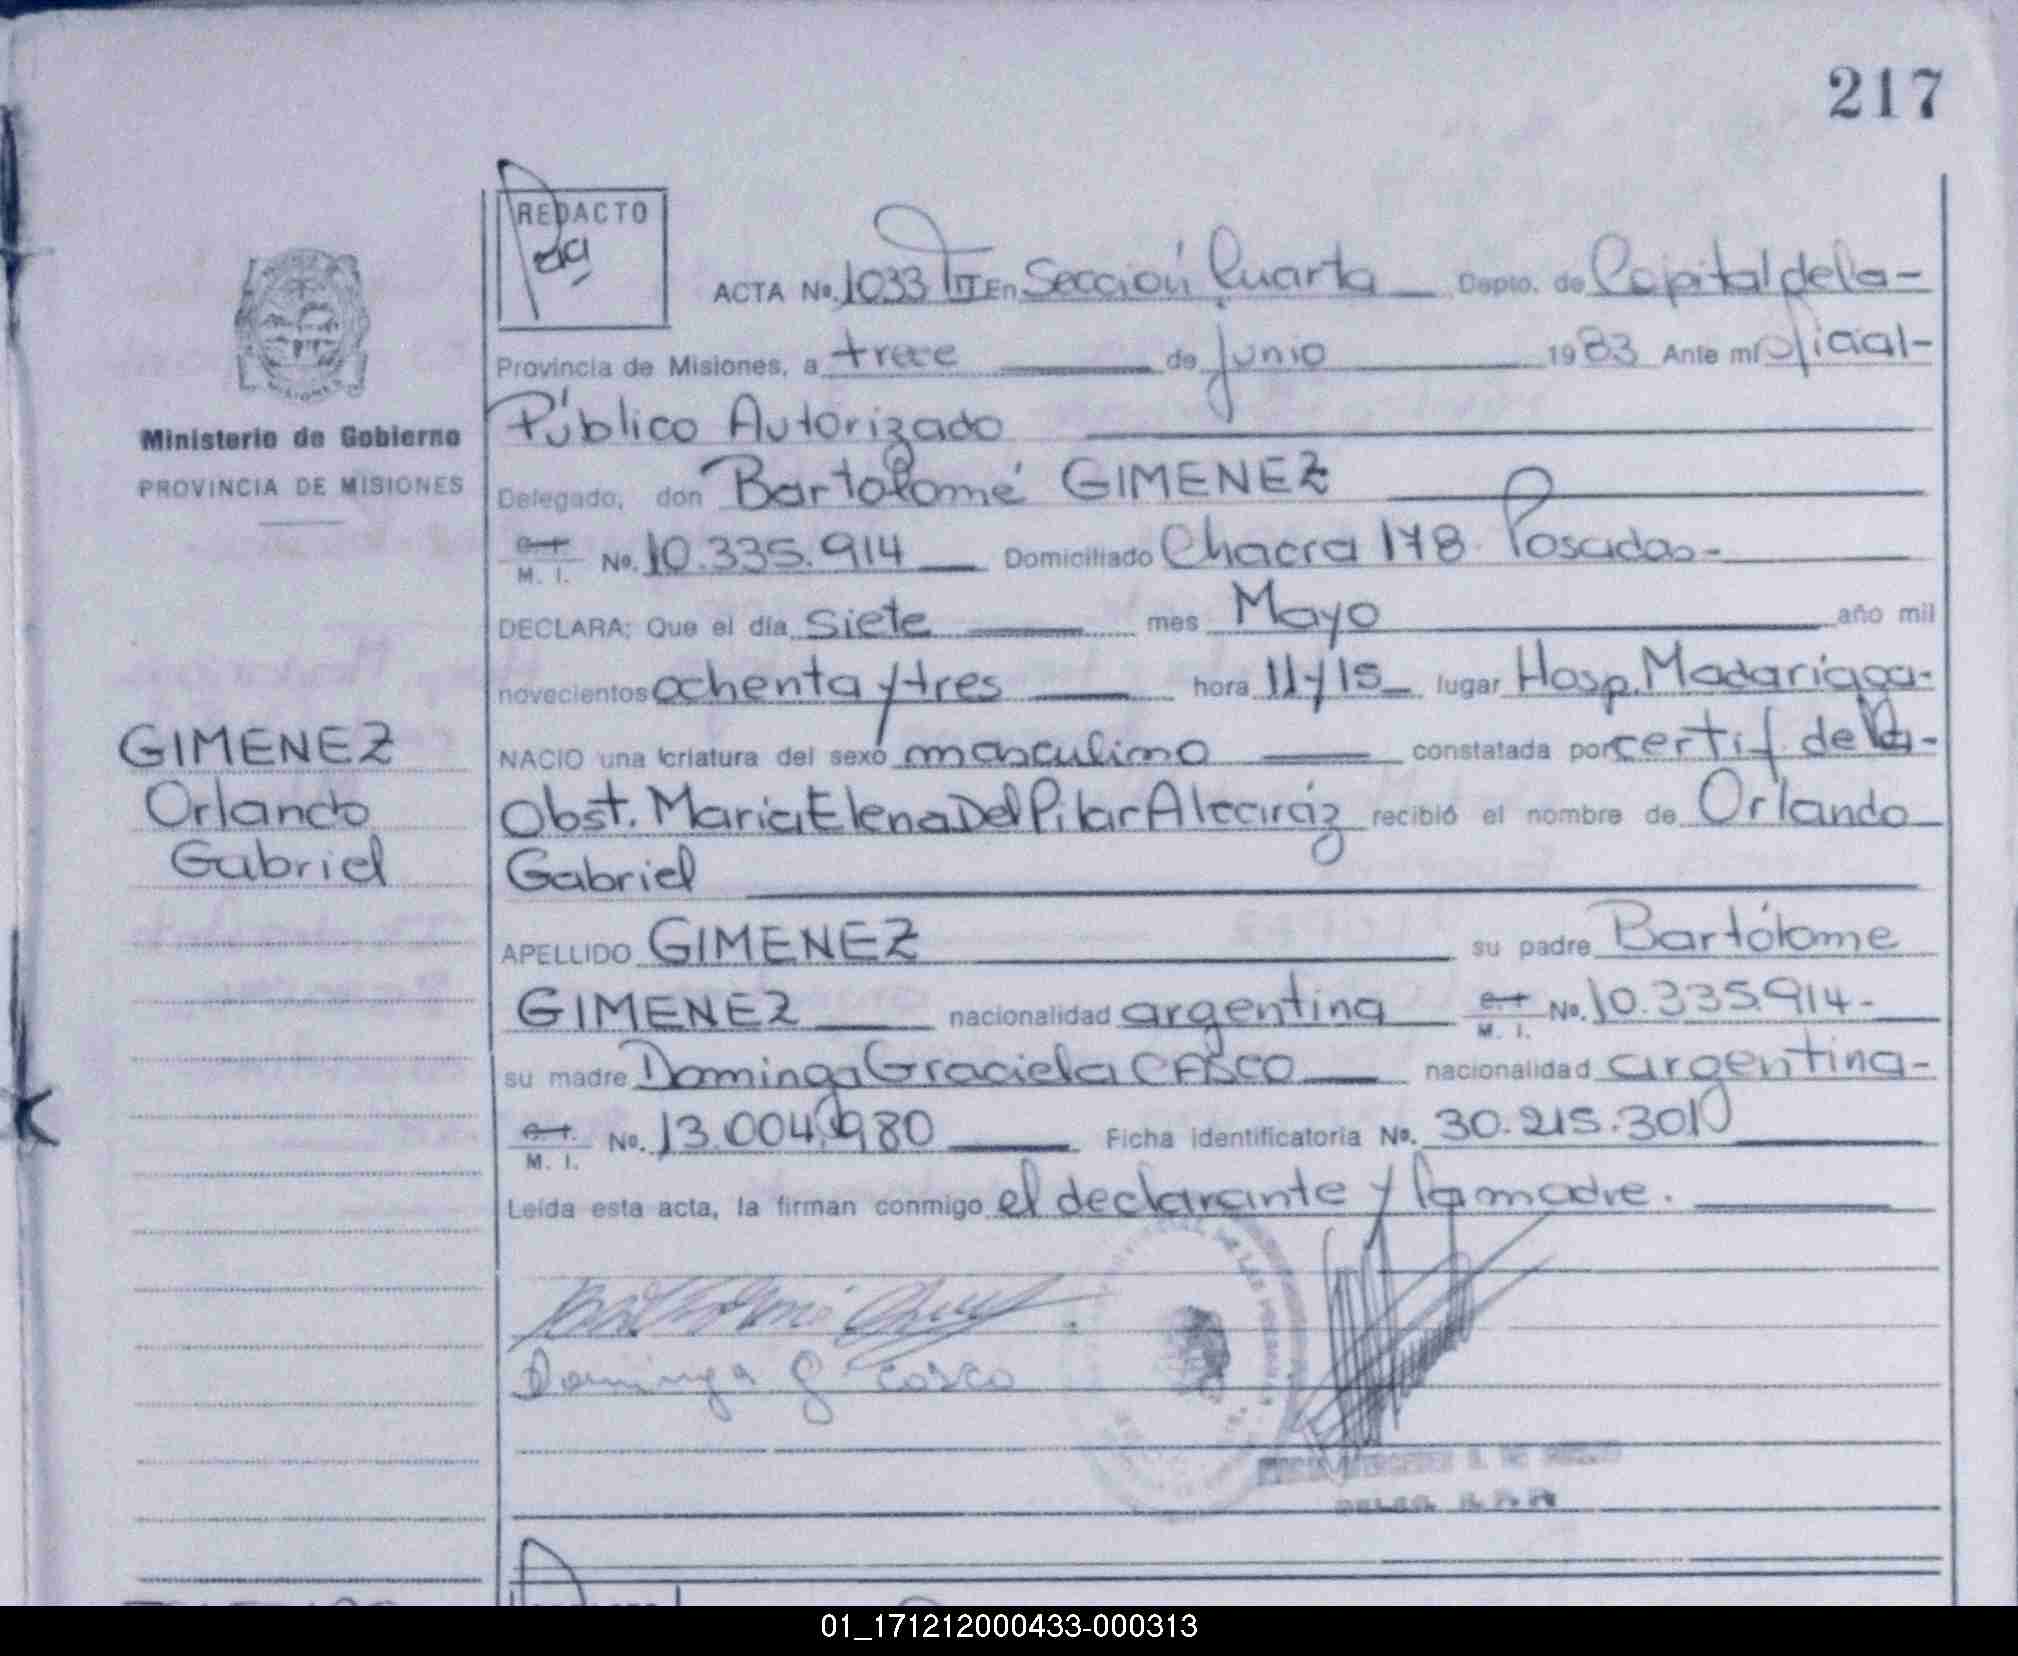 217
REDACTO
ACTA No. 1033 TII En Sección Cuarta Depto. de Capital de la -
Provincia de Misiones, a trece de junio 1983 Ante mí oficial -
Público Autorizado
Ministerio de Gobierno
PROVINCIA DE MISIONES
Delegado, don Bartolomé GIMENEZ
M. I. No. 10.335.914 Domiciliado Chacra 178 Posadas -
DECLARA: Que el día siete mes Mayo año mil
novecientos ochenta y tres hora 11 y 15 lugar Hosp. Madariaga -
NACIO una criatura del sexo masculino constatada por certif. de la -
Obst. Maria Elena Del Pilar Alcaráz recibió el nombre de Orlando
Gabriel
GIMENEZ
Orlando
Gabriel
APELLIDO GIMENEZ su padre Bartólome
GIMENEZ nacionalidad argentina M. I. No. 10.335.914 -
su madre Dominga Graciela CASCO nacionalidad argentina -
M. I. No. 13.004.980 Ficha identificatoria No. 30.215.301
Leída esta acta, la firman conmigo el declarante y la madre.
Dominga G Casco
01_171212000433-000313